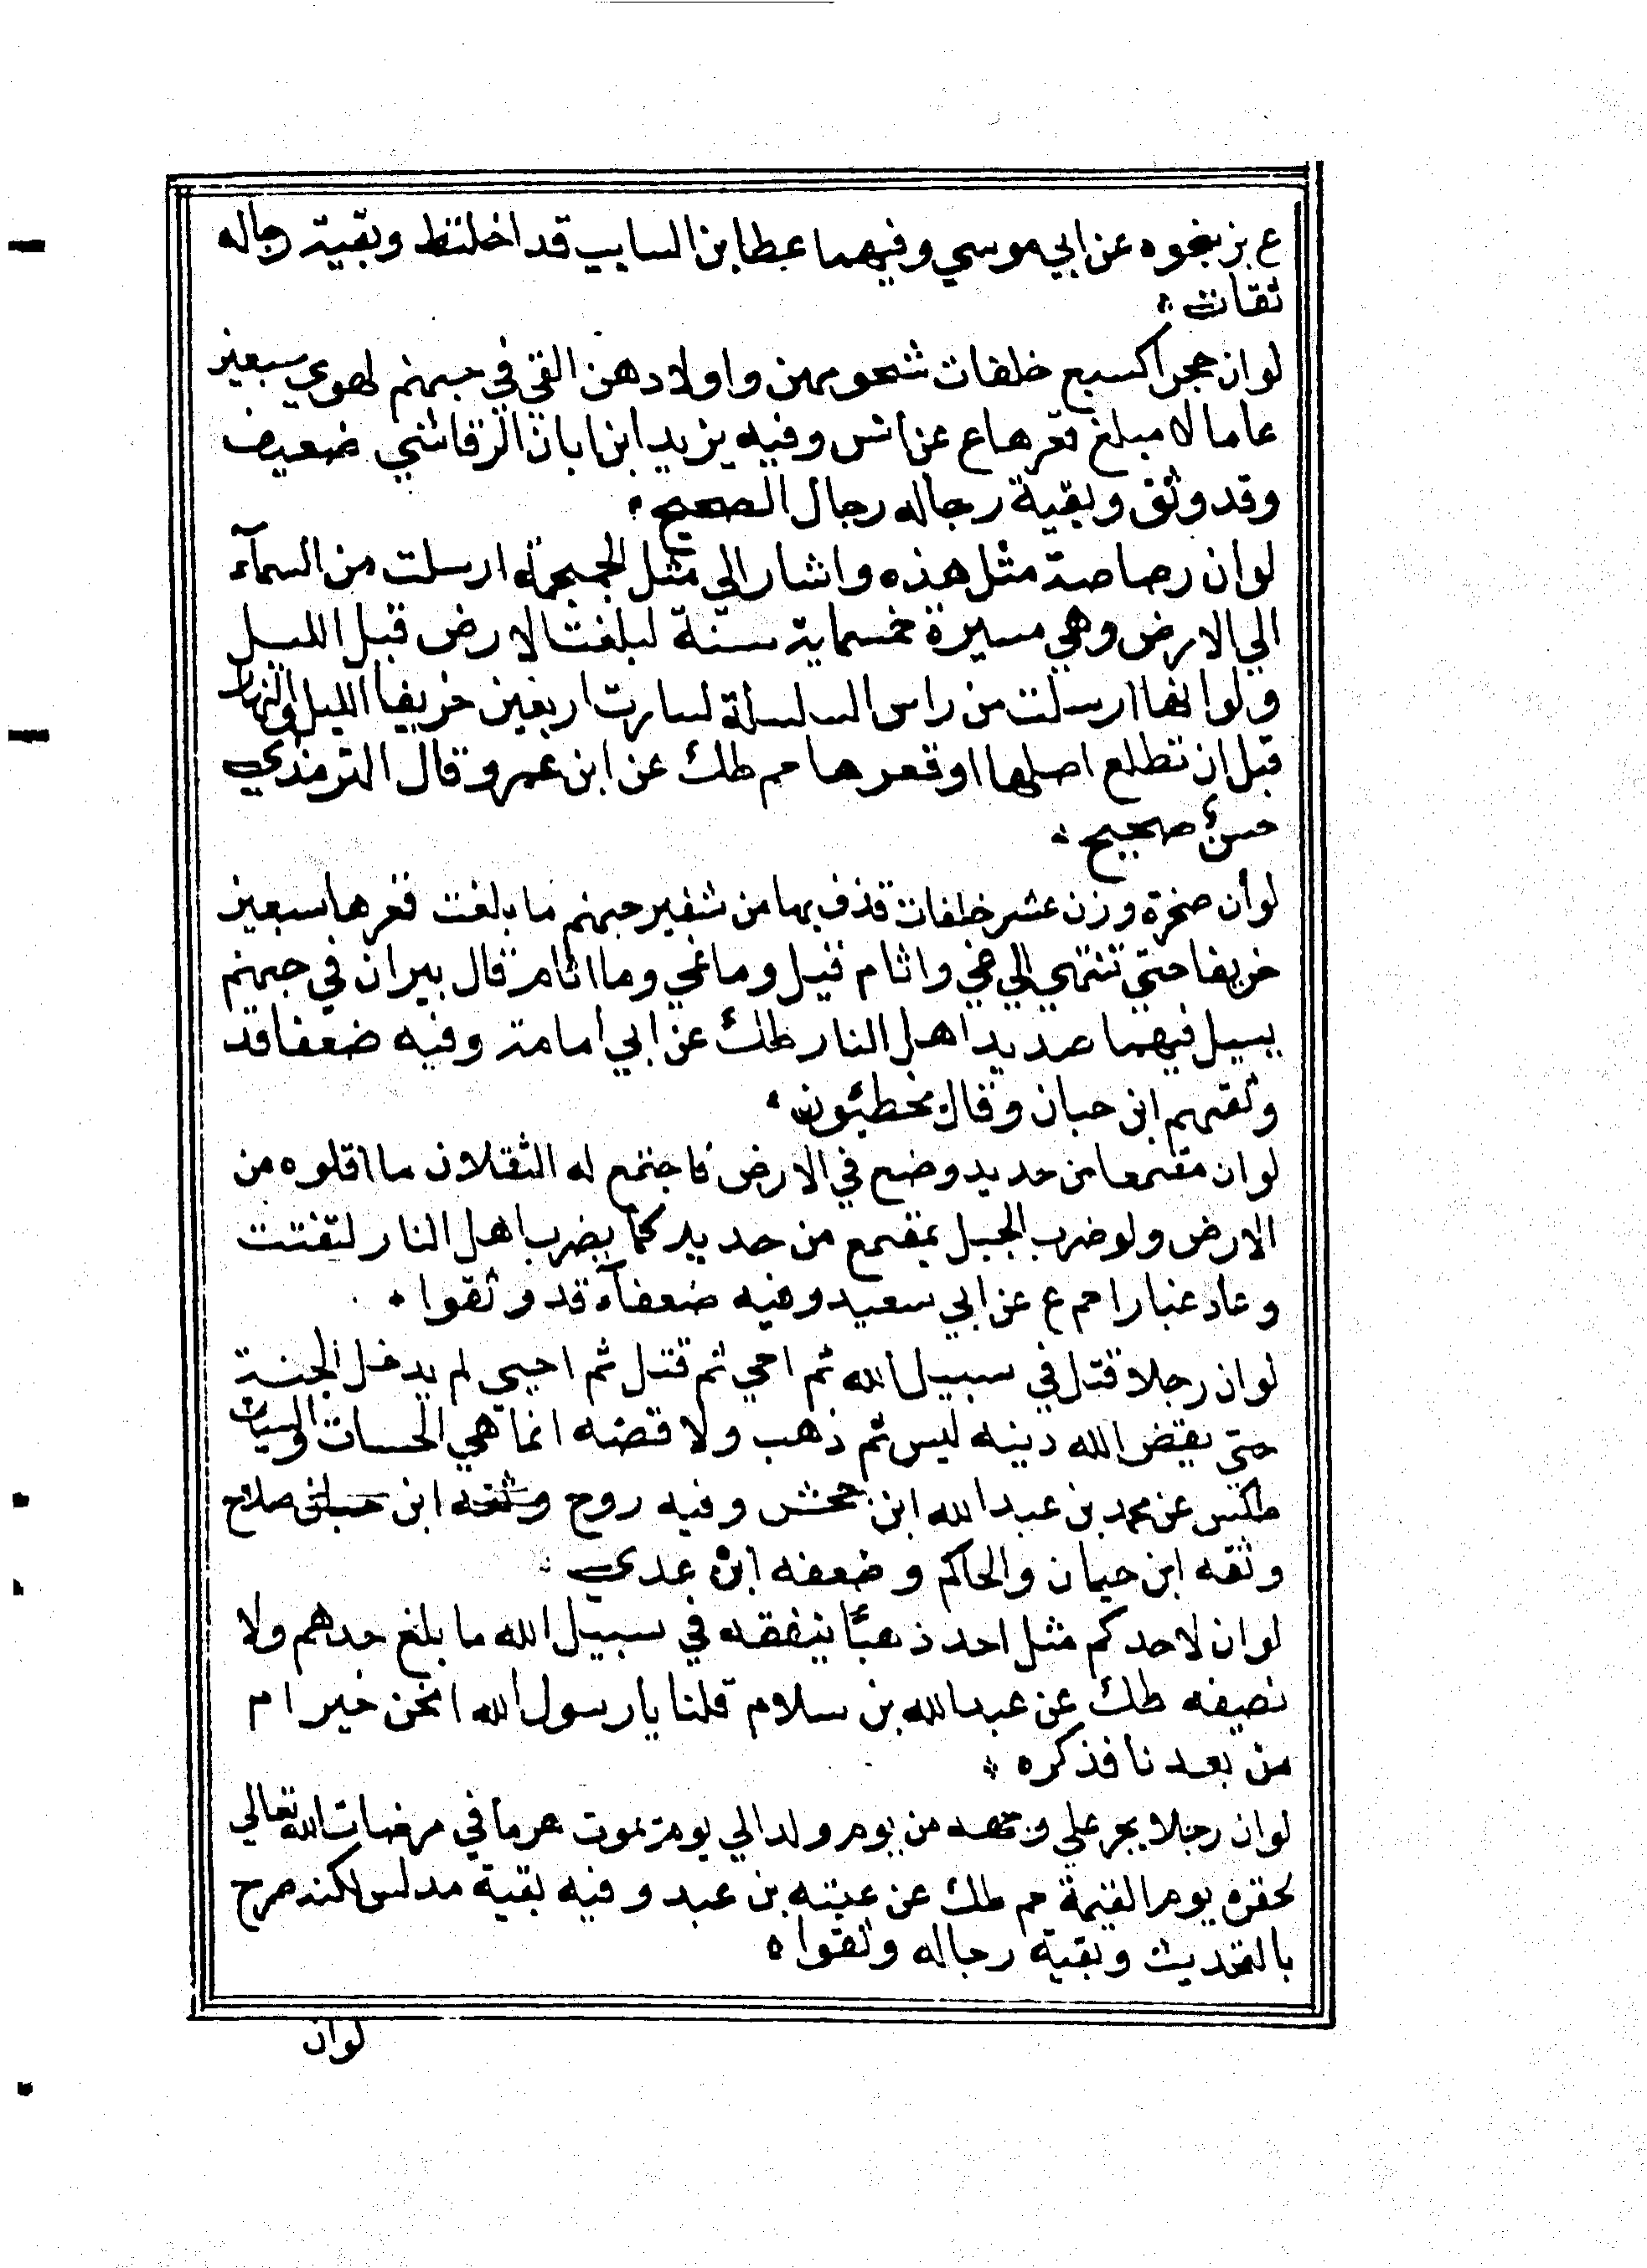 ع بز بنحوه عن ابي موسي وفيهما عطا ابن السايب قد اختلط وبقية رجاله
ثقات
لو ان حجرا كسبع خلفات شحومهن واولادهن القي في جهنم لهوي سبعين
عاما لا مبلغ قعرها ع عن انس وفيه يزيد ابن ابان الرقاشي ضعيف
وقد وثق وبقية رجاله رجال الصحيح
لو ان رصاصة مثل هذه واشار الي مثل الجمجمة ارسلت من السمآء
الي الارض وهي مسيرة خمسماية سنة لبلغت الارض قبل الليل
ولو انها ارسلت من راس السلسلة لسارت اربعين خريفا الليل والنهار
قبل ان تطلع اصلها او قعرها حم طك عن ابن عمرو قال الترمذي
حسن صحيح
لو أن صخرة وزن عشر خلفات قذف بها من شفير جهنم ما بلغت قعرها سبعين
خريفا حتي تنتهي الي غي واثام قيل وما غي وما اثام قال بيران في جهنم
يسيل فيهما صديد اهل النار طك عن ابي امامة وفيه ضعفا قد
وثقهم ابن حبان وقال يخطئون
لو ان مقمعا من حديد وضع في الارض فاجتمع له الثقلان ما اقلوه من
الارض ولو ضرب الجبل بمقمع من حديد كما يضرب اهل النار لتفتت
وعاد غبارا حم ع عن ابي سعيد وفيه ضعفآء قد وثقوا
لو ان رجلا قتل في سبيل الله ثم احي ثم قتل ثم احيي لم يدخل الجنة
حتي يقض الله دينه ليس ثم ذهب ولا فضه انما هي الحسنات والسيات
طكس عن محمد بن عبد الله ابن جحش وفيه روح وثقه ابن صلاح
وثقه ابن حبان والحاكم وضعفه ابن عدي
لو ان لاحدكم مثل احد ذهبًا ينفقه في سبيل الله ما بلغ حدهم ولا
نصيفه طك عن عبد الله بن سلام قلنا يا رسول الله انحن خير ام
من بعدنا فذكره
لو ان رجلا يجر علي وجهه من يوم ولد الي يوم يموت هرما في مرضات الله تعالي
لحقره يوم القيمة حم طك عن عتبه بن عبد وفيه بقية مدلس لكنه صرح
بالتحديث وبقية رجاله وثقوا
لو ان